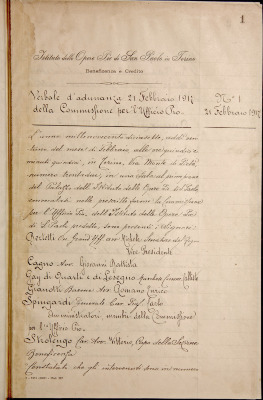 1
Istituto delle Opere Pie di San Paolo in Torino
Beneficenza e Credito
Verbale d'adunanza 21 Febbraio 1917
della Commissione per l'Ufficio Pio
N° 1
21 Febbraio 1917
L'anno millenovecentodiciassette, addì ventuno
del mese di Febbraio, alle ore quindici e
minuti quindici, in Torino, Via Monte di Pietà
numero trentadue, in una sala al primo piano
del Palazzo dell'Istituto delle Opere Pie di San Paolo
convocata nelle prescritte forme la Commissione
per l'Ufficio Pio dell'Istituto delle Opere Pie
di S. Paolo predetto, sono presenti i Signori:
Gr. Uff. avv. Michele
Vice Presidente
Cagno Avv. Giovanni Battista
Gay di Quarti e di Lesegno
Gianotti Barone Avv. Romano
Spingardi Generale Cav.
Amministratori, membri della Commissione
per l'Ufficio Pio
Strolengo Cav. Avv. Vittorio, Capo della Sezione
Beneficenza
Constatato che gli intervenuti sono in numero